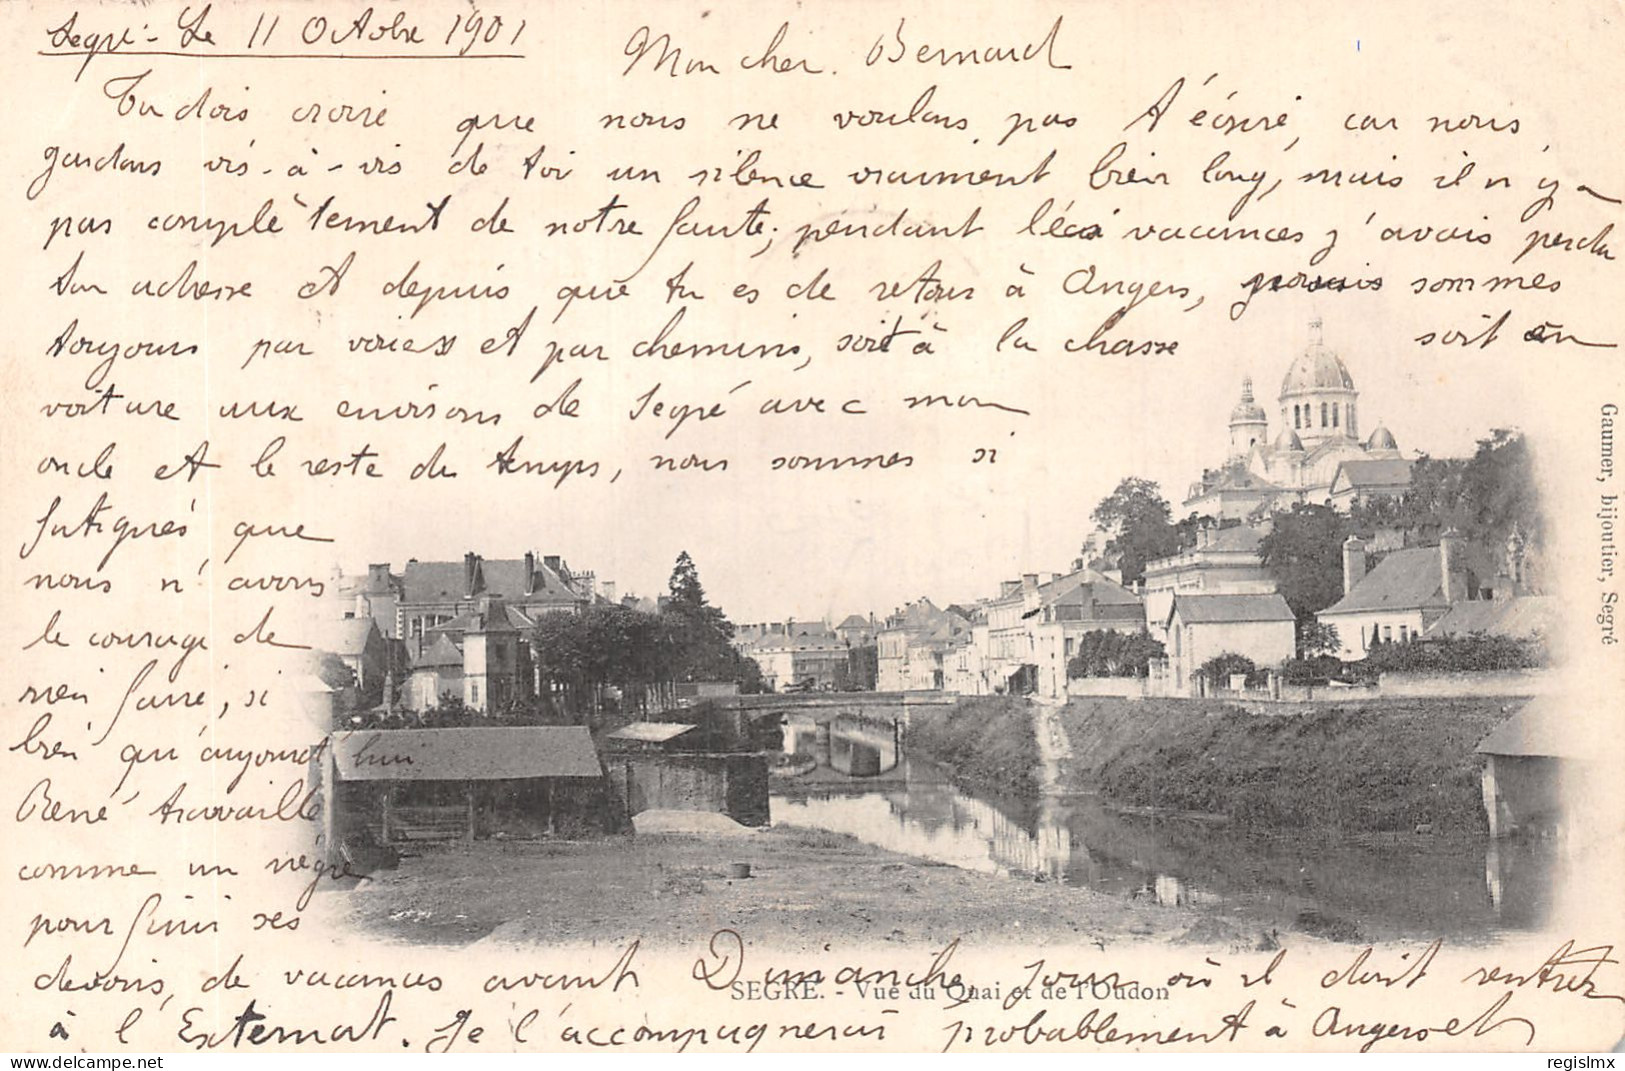 Segré - Le 11 Octobre 1901
Mon cher Bernard
Tu dois croire que nous ne voulons pas t'écrire, car nous
gardons vis-à-vis de toi un silence vraiment bien long, mais il n'y a
pas complètement de notre faute; pendant les vacances j'avais perdu
ton adresse et depuis que tu es de retour à Angers, nous sommes
toujours par voies et par chemins, soit à la chasse soit en
voiture aux environs de Segré avec mon
oncle et le reste du temps, nous sommes si
fatigués que
nous n'avons
le courage de
rien faire, si
bien qu'aujourd'hui
René travaille
comme un nègre
pour finir ses
devoirs, de vacances avant Dimanche, jour où il doit rentrer
à l'Externat. Je l'accompagnerai probablement à Angers et
SEGRÉ. - Vue du Quai et de l'Oudon
Gaumer, bijoutier, Segré
regislmx